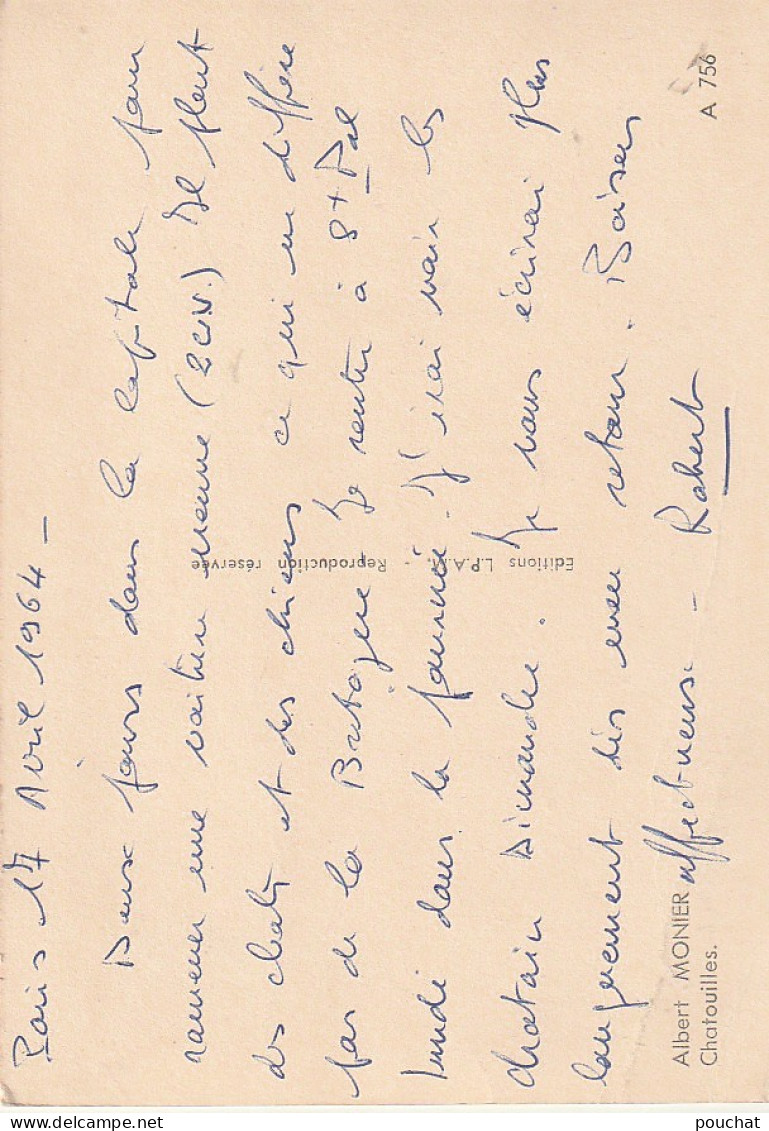 Paris 17 Avril 1964 -
Deux jours dans la capitale pour
ramener une voiture neuve (2 CV.) Il pleut
des chats et des chiens ce qui ne diffère
pas de la Bretagne Je rentre à St Pol
lundi dans la journée - J'irai voir les
Chatain Dimanche. Je vous écrirai plus
longuement dès mon retour. Baisers
affectueux - Robert
Editions L.P.A.M. - Reproduction réservée
Albert MONIER
Chatouilles.
A 756
pouchat